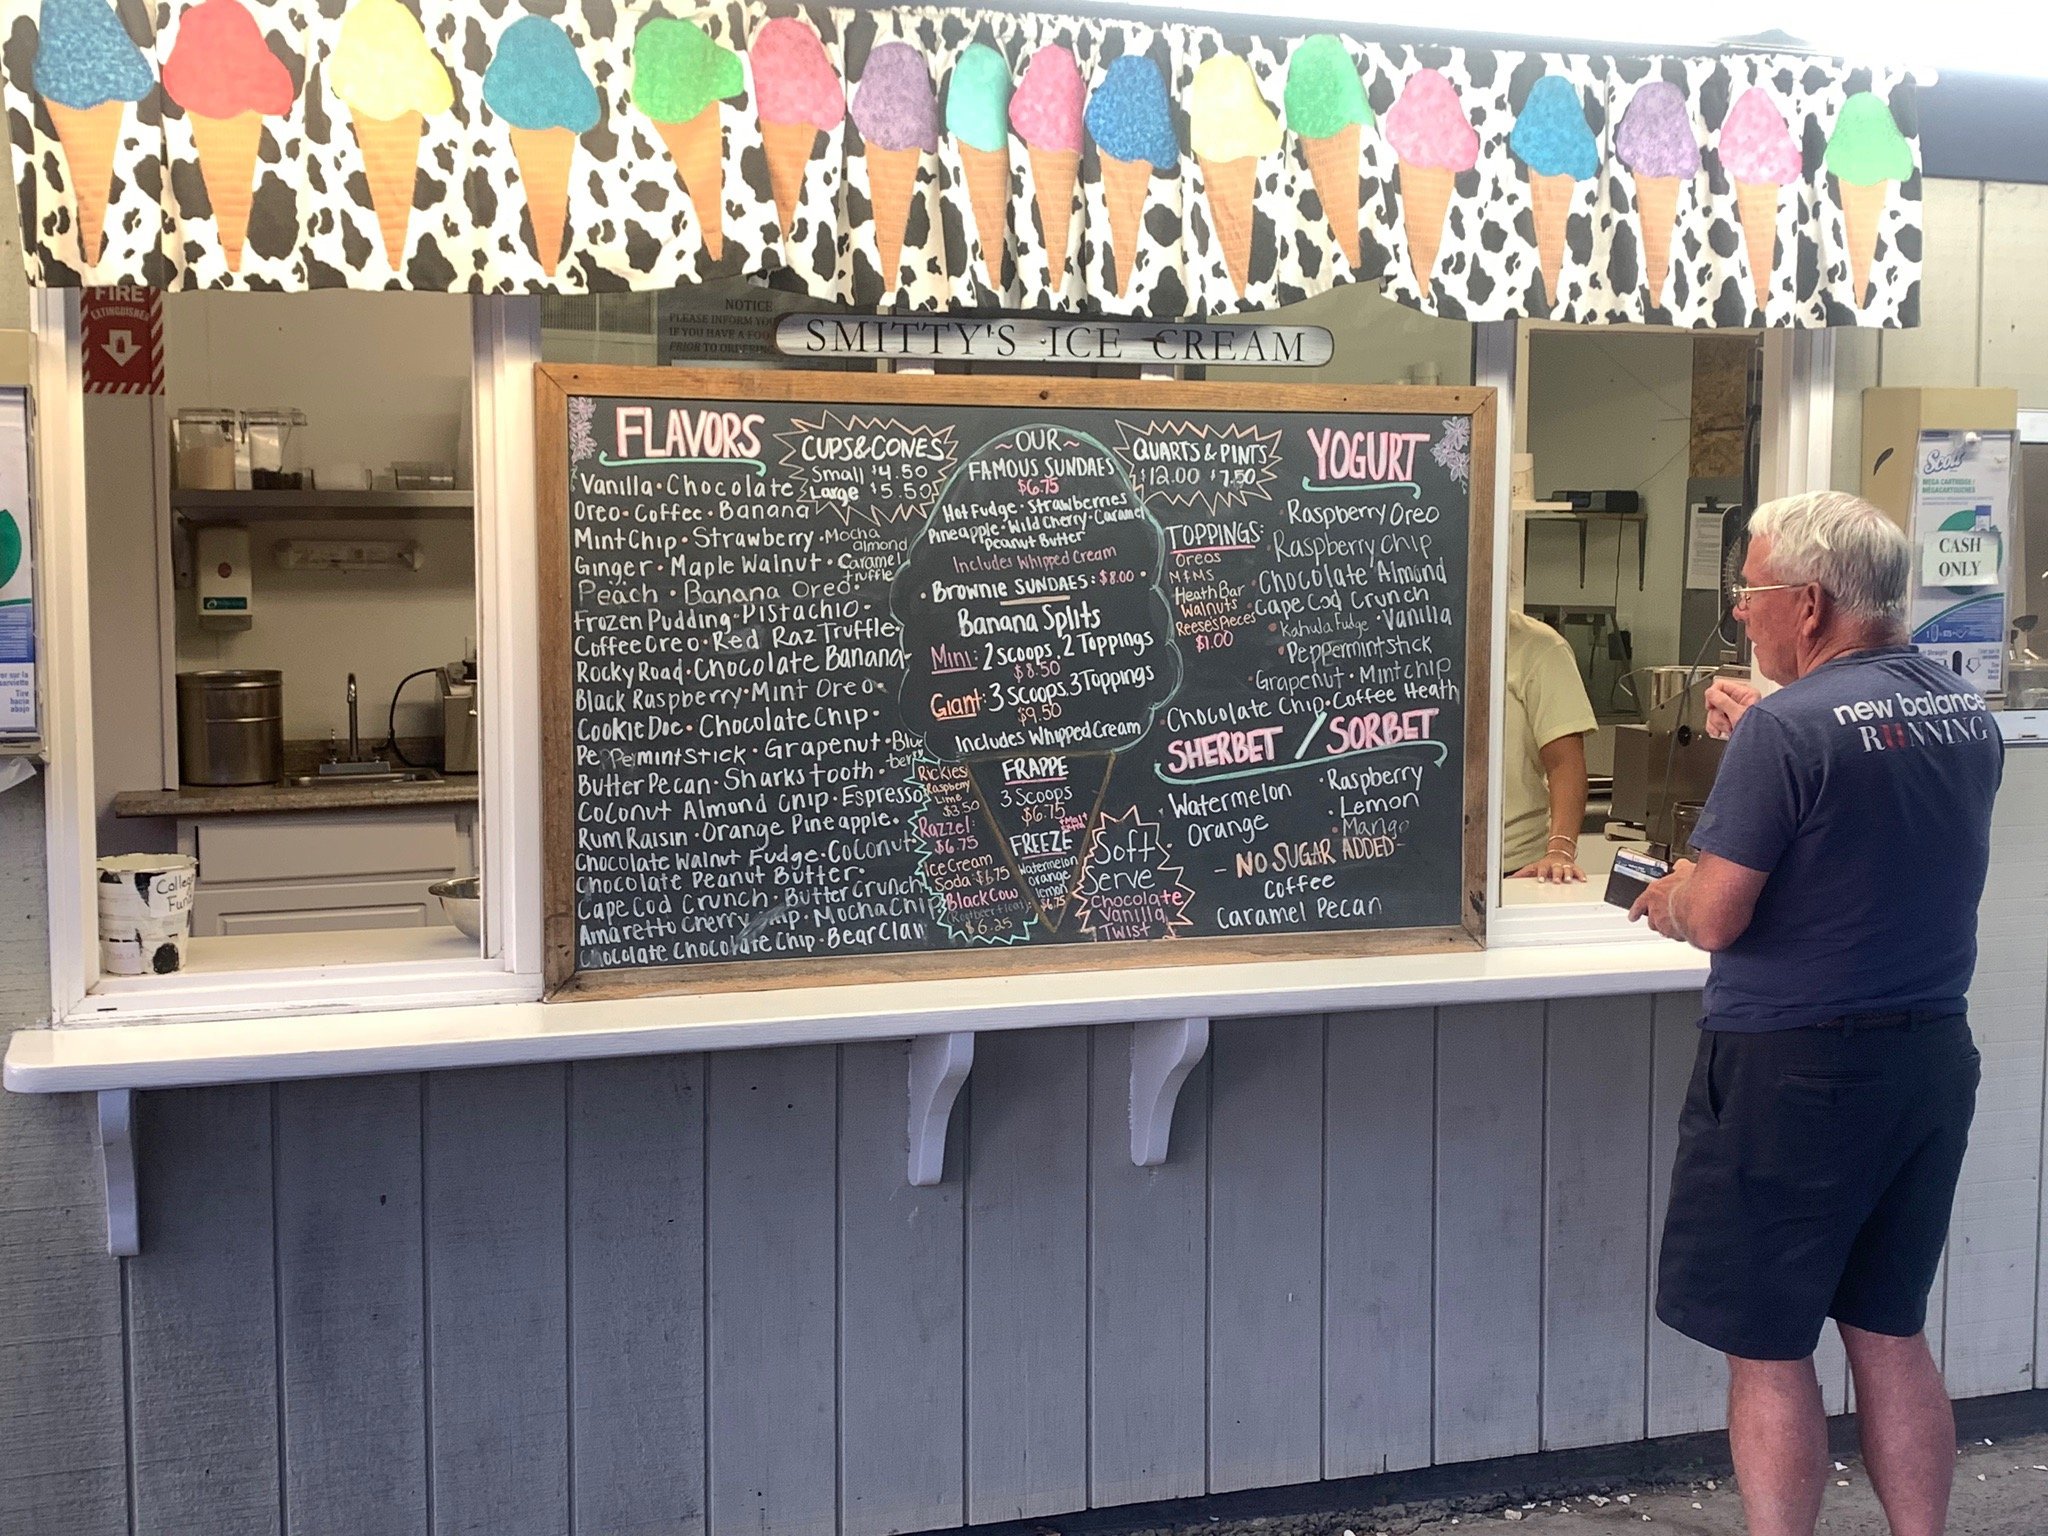 FIRE
EXTINGUISHER
NOTICE
PLEASE INFORM
IF YOU HAVE A
PRIOR TO ORDERING
SMITTY'S ICE CREAM
FLAVORS
Vanilla • Chocolate
Oreo • Coffee • Banana
Mint Chip • Strawberry • Mocha almond
Ginger • Maple Walnut • Caramel truffle
Peach • Banana Oreo •
Frozen Pudding • Pistachio •
Coffee Oreo • Red Raz Truffle •
Rocky Road • Chocolate Banana
Black Raspberry • Mint Oreo •
Cookie Doe • Chocolate Chip •
Peppermint stick • Grapenut • Blueberry
Butter Pecan • Sharks tooth •
Coconut Almond Chip • Espresso
Rum Raisin • Orange Pineapple •
Chocolate Walnut Fudge • Coconut
Chocolate Peanut Butter •
Cape Cod Crunch • Butter Crunch
Amaretto Cherry • Mocha Chip
Chocolate Chocolate Chip • Bear Claw
CUPS & CONES
Small $4.50
Large $5.50
~OUR~
FAMOUS SUNDAES
$6.75
Hot Fudge • Strawberries
Pineapple • Wild Cherry • Caramel
Peanut Butter
Includes Whipped Cream
• Brownie SUNDAES: $8.00 •
Banana Splits
Mini: 2 scoops. 2 Toppings
$8.50
Giant: 3 scoops. 3 Toppings
$9.50
Includes Whipped Cream
FRAPPE
3 SCOOPS
$6.75
FREEZE
Watermelon
orange
lemon
$6.75
Rickies
Raspberry
Lime
$3.50
Razzel:
$6.75
Ice Cream
Soda $6.75
Black Cow
$6.25
Soft
Serve
Chocolate
Vanilla
Twist
QUARTS & PINTS
$12.00 $7.50
TOPPINGS:
Oreos
M&Ms
Heath Bar
Walnuts
Reese's Pieces
$1.00
YOGURT
• Raspberry Oreo
• Raspberry Chip
• Chocolate Almond
• Cape Cod Crunch
• Kahula Fudge • Vanilla
• Peppermint stick
• Grapenut • Mint chip
• Chocolate Chip • Coffee Heath
SHERBET / SORBET
• Watermelon
• Orange
• Raspberry
• Lemon
• Mango
- NO SUGAR ADDED -
Coffee
Caramel Pecan
Scott
MEGA CARTRIDGE /
CASH
ONLY
new balance
RUNNING